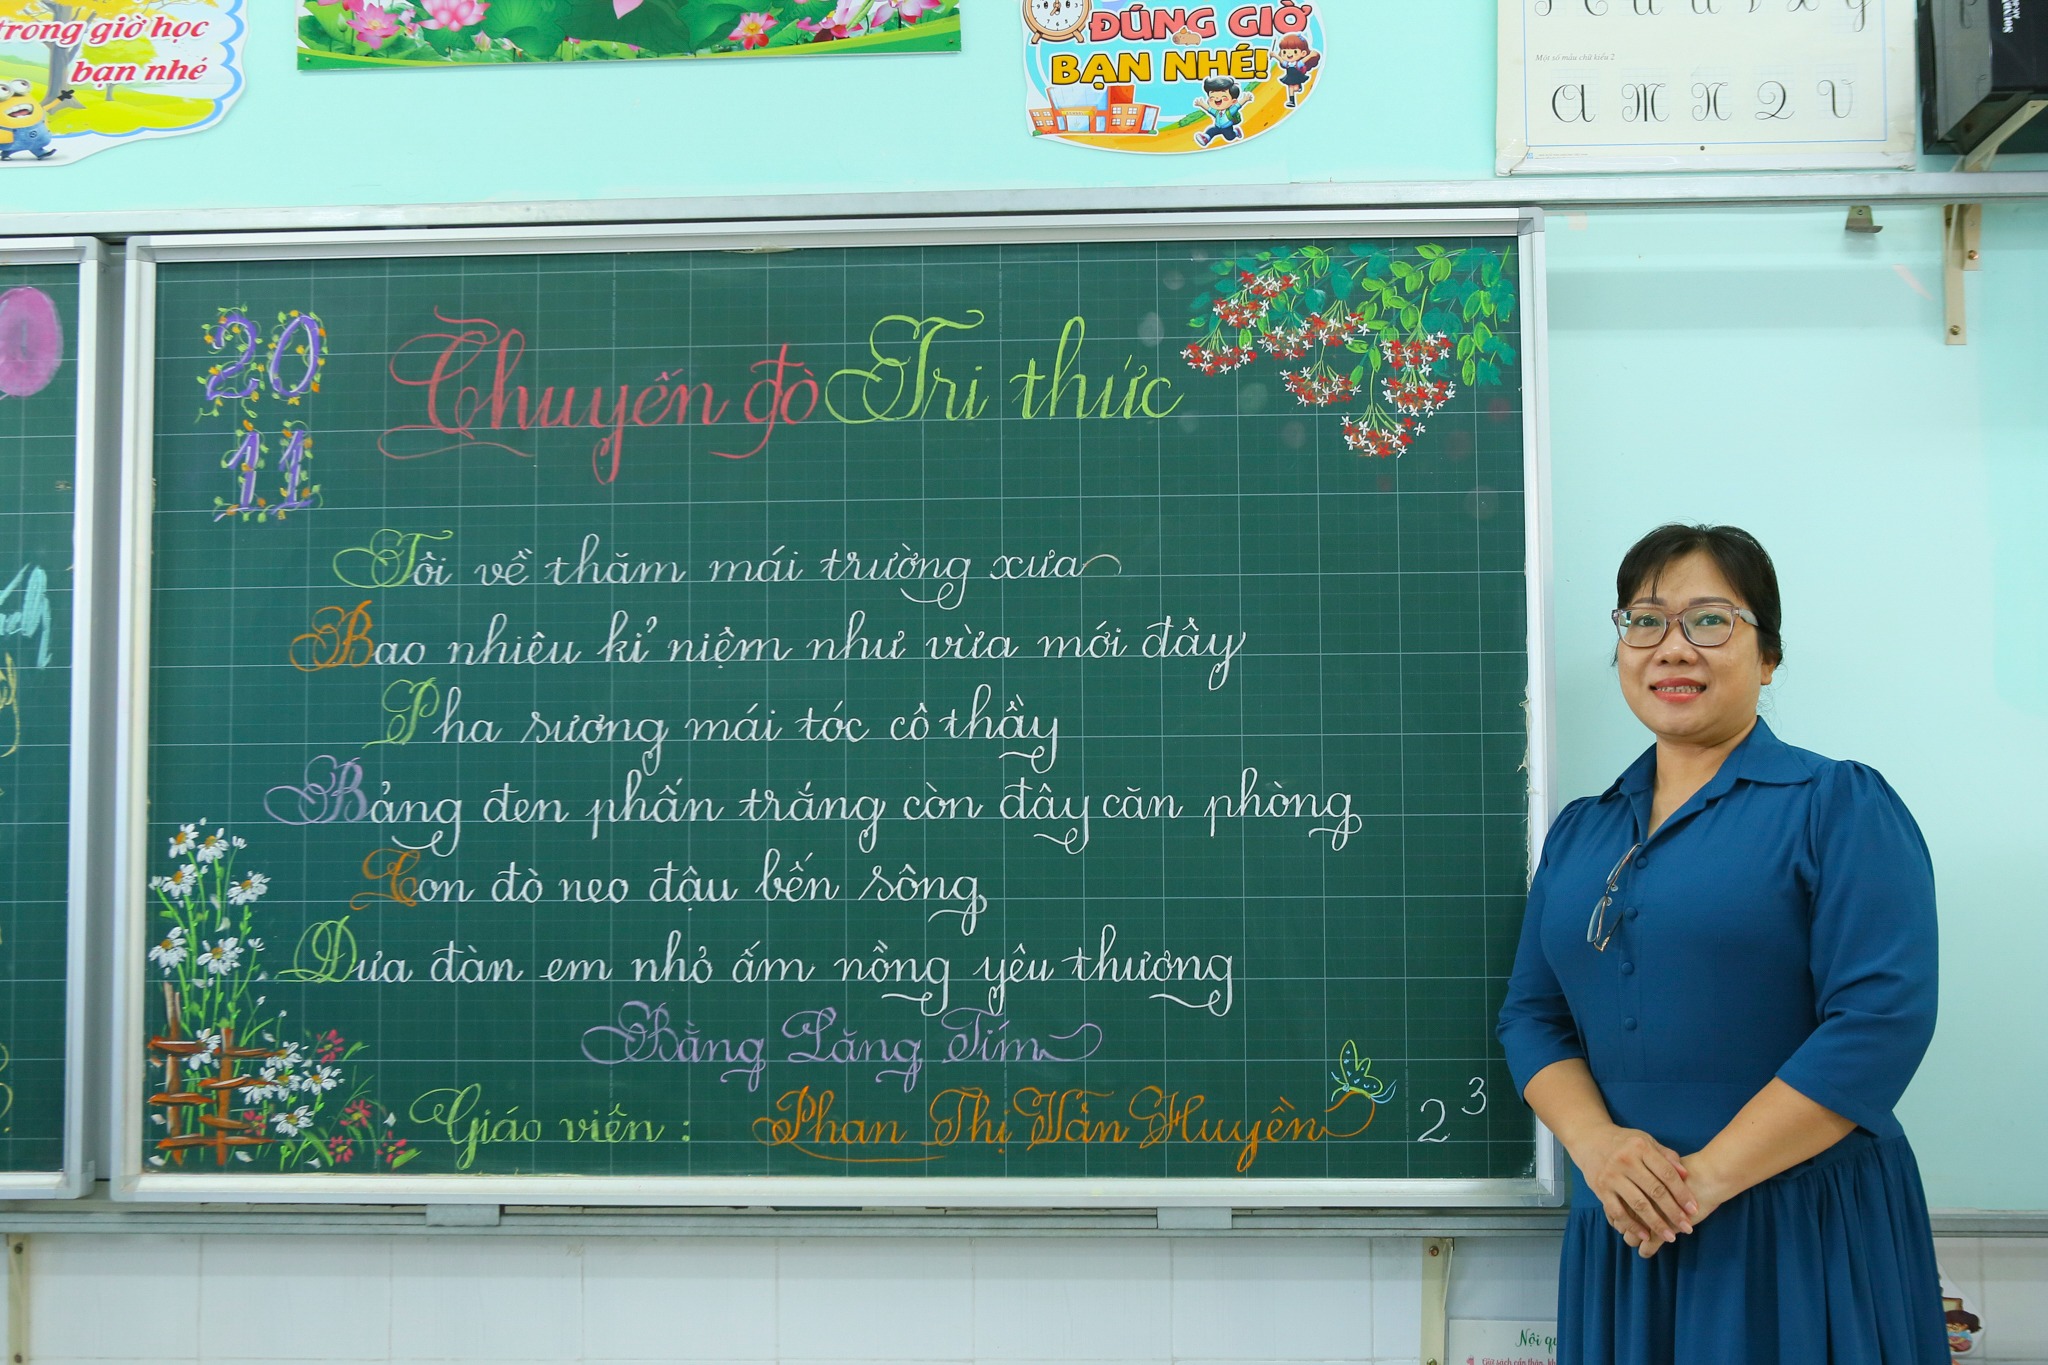 trong giờ học
bạn nhé
ĐÚNG GIỜ
BẠN NHÉ!
Một số mẫu chữ kiểu 2
A M N Q V
20
11
Chuyến đò Tri thức
Tôi về thăm mái trường xưa
Bao nhiêu kỉ niệm như vừa mới đây
Pha sương mái tóc cô thầy
Bảng đen phấn trắng còn đầy căn phòng
Con đò neo đậu bến sông
Đưa đàn em nhỏ ấm nồng yêu thương
Bằng Lăng Tím
Giáo viên : Phan Thị Vân Huyền
2 3
Nội qu